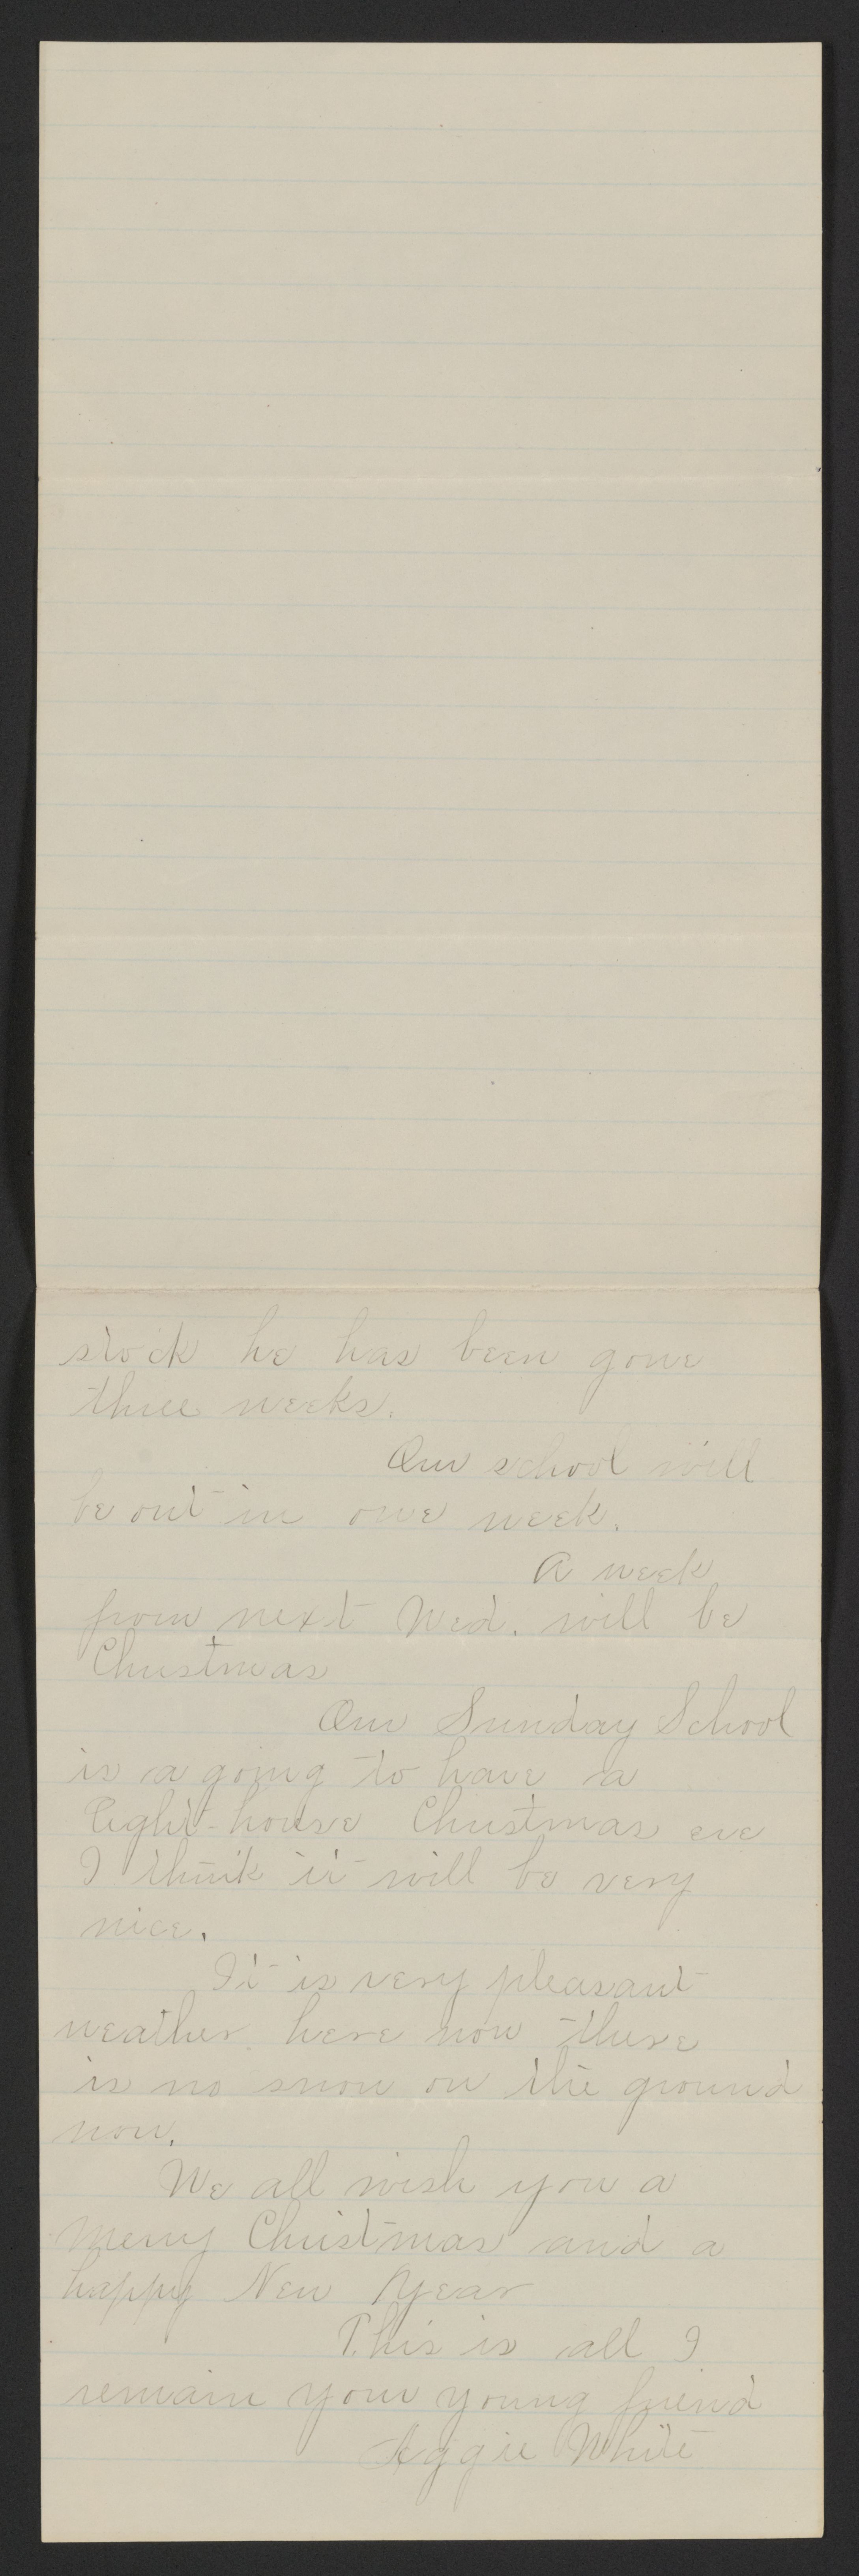 stock he has been gone
three weeks.
Our school will
be out in one week.
A week
from next Wed. will be
Christmas
Our Sunday School
is a going to have a
light-house Christmas eve
I think it will be very
nice.
It is very pleasant
weather here now there
is no snow on the ground
now.
We all wish you a
merry Christmas and a
happy New Year
This is all I
remain your young friend
Aggie White